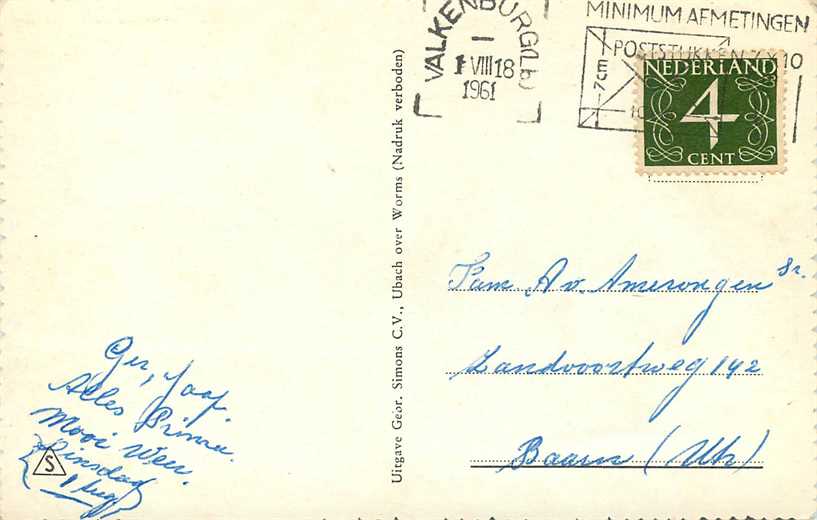 VALKENBURG(Lb)
1 VIII 18
1961
MINIMUM AFMETINGEN
POSTSTUKKEN 7 X 10
NEDERLAND
4
CENT
Uitgave Gebr. Simons C.V., Ubach over Worms (Nadruk verboden)
Fam A v. Amerongen Sr.
Zandvoortweg 142
Baarn (Utr)
Ger, Jaap.
Alles Prima.
Mooi Weer.
Dinsdag
1 Aug
S